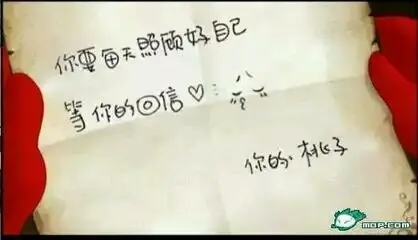 你要每天照顾好自己
等你的回信♡
你的·桃子
mop.com